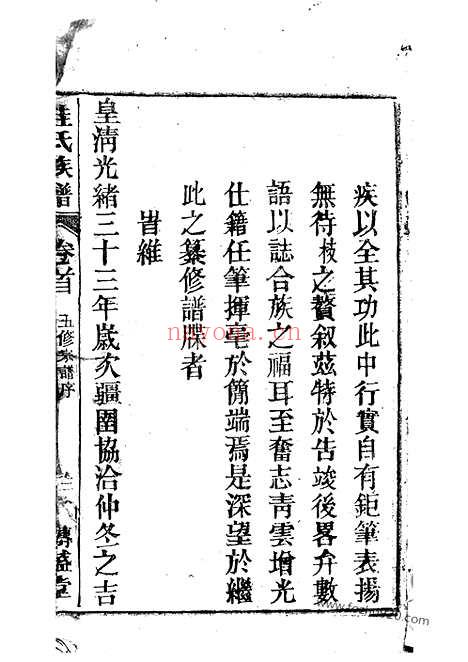 疾以全其功此中行實自有鉅筆表揚
無待枝之贅叙茲特於告竣後畧弁數
語以誌合族之福耳至奮志青雲增光
仕籍任筆揮毫於簡端焉是深望於繼
此之纂修譜牒者
旹維
皇清光緒三十三年歲次彊圉協洽仲冬之吉
氏族譜
卷首
五修
譜序
nayona.cn